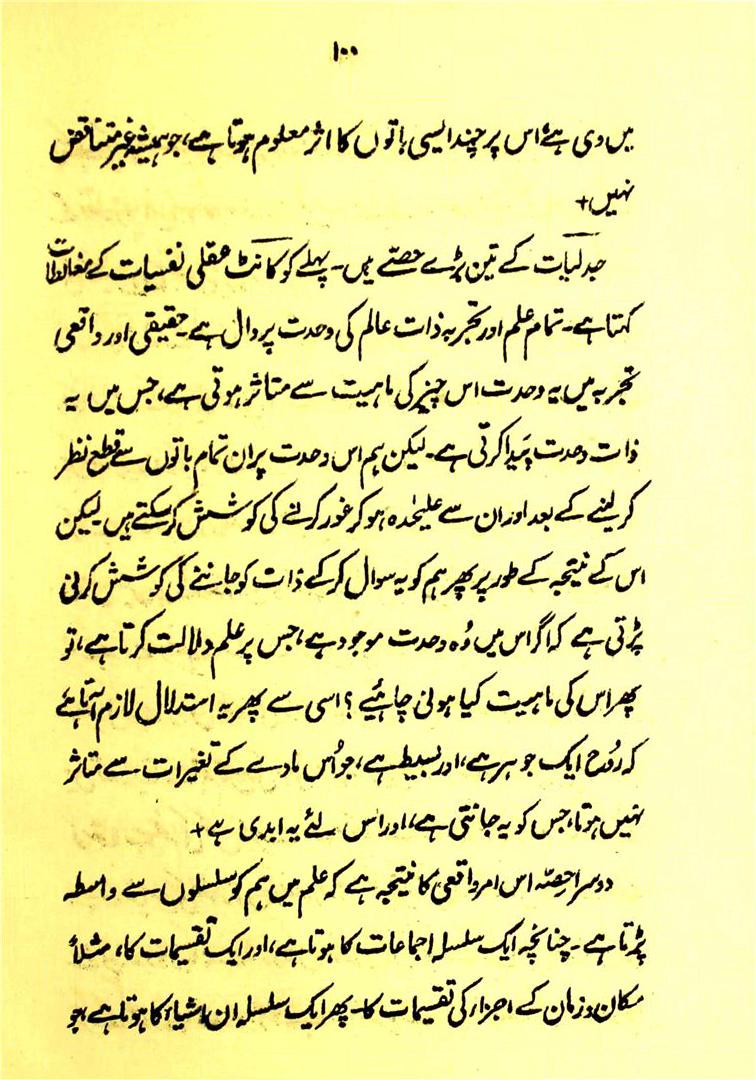 ۱۰۰
میں دی ہے، اس پر چند ایسی باتوں کا اثر معلوم ہوتا ہے، جو ہمیشہ غیر متناقض
نہیں+
جدلیات کے تین بڑے حصے ہیں۔ پہلے کو کانٹ عقلی نفسیات کے مغالطات
کہتا ہے۔ تمام علم اور تجربہ ذات عالم کی وحدت پر دال ہے۔ حقیقی اور واقعی
تجربہ میں یہ وحدت اس چیز کی ماہیت سے متاثر ہوتی ہے، جس میں یہ
ذات وحدت پیدا کرتی ہے۔ لیکن ہم اس وحدت پر ان تمام باتوں سے قطع نظر
کر لینے کے بعد اور ان سے علیٰحدہ ہو کر غور کرنے کی کوشش کر سکتے ہیں۔ لیکن
اس کے نتیجہ کے طور پر پھر ہم کو یہ سوال کر کے ذات کو جاننے کی کوشش کرنی
پڑتی ہے کہ اگر اس میں وُہ وحدت موجود ہے، جس پر علم دلالت کرتا ہے، تو
پھر اس کی ماہیت کیا ہونی چاہئیے؟ اسی سے پھر یہ استدلال لازم آتا ہے
کہ رُوح ایک جوہر ہے، اور بسیط ہے، جو اُس مادے کے تغیرات سے متاثر
نہیں ہوتا، جس کو یہ جانتی ہے، اور اس لئے یہ ابدی ہے+
دوسرا حِصّہ اس امر واقعی کا نتیجہ ہے کہ علم میں ہم کو سلسلوں سے واسطہ
پڑتا ہے۔ چنانچہ ایک سلسلہ اجماعات کا ہوتا ہے، اور ایک تقسیمات کا، مثلاً
مکان و زمان کے اجزاء کی تقسیمات کا۔ پھر ایک سلسلہ ان اشیاء کا ہوتا ہے، جو